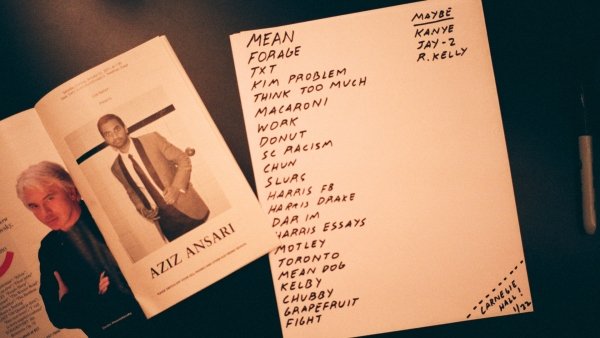 AZIZ ANSARI
MEAN
FORAGE
TXT
KIM PROBLEM
THINK TOO MUCH
MACARONI
WORK
DONUT
SC RACISM
CHUN
SLURS
HARRIS FB
HARRIS DRAKE
DAR IM
HARRIS ESSAYS
MOTLEY
TORONTO
MEAN DOG
KELBY
CHUBBY
GRAPEFRUIT
FIGHT
MAYBE
KANYE
JAY-Z
R. KELLY
CARNEGIE
HALL!
1/22